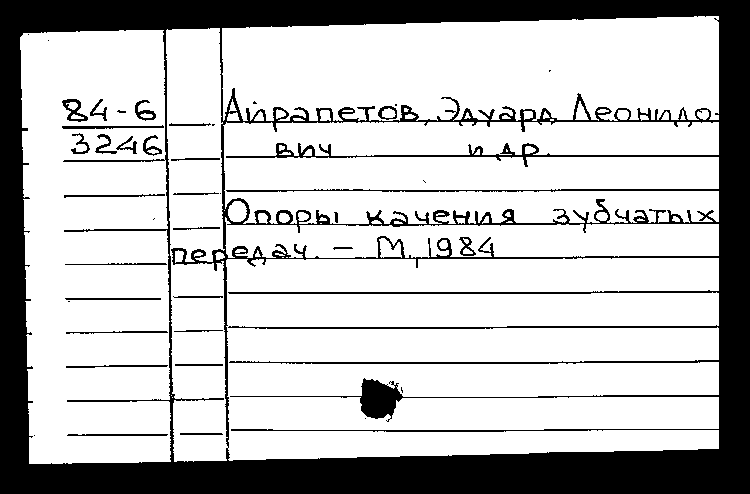 84-6 Айрапетов, Эдуард Леонидо-
3246 вич и др.
Опоры качения зубчатых
передач. – М., 1984